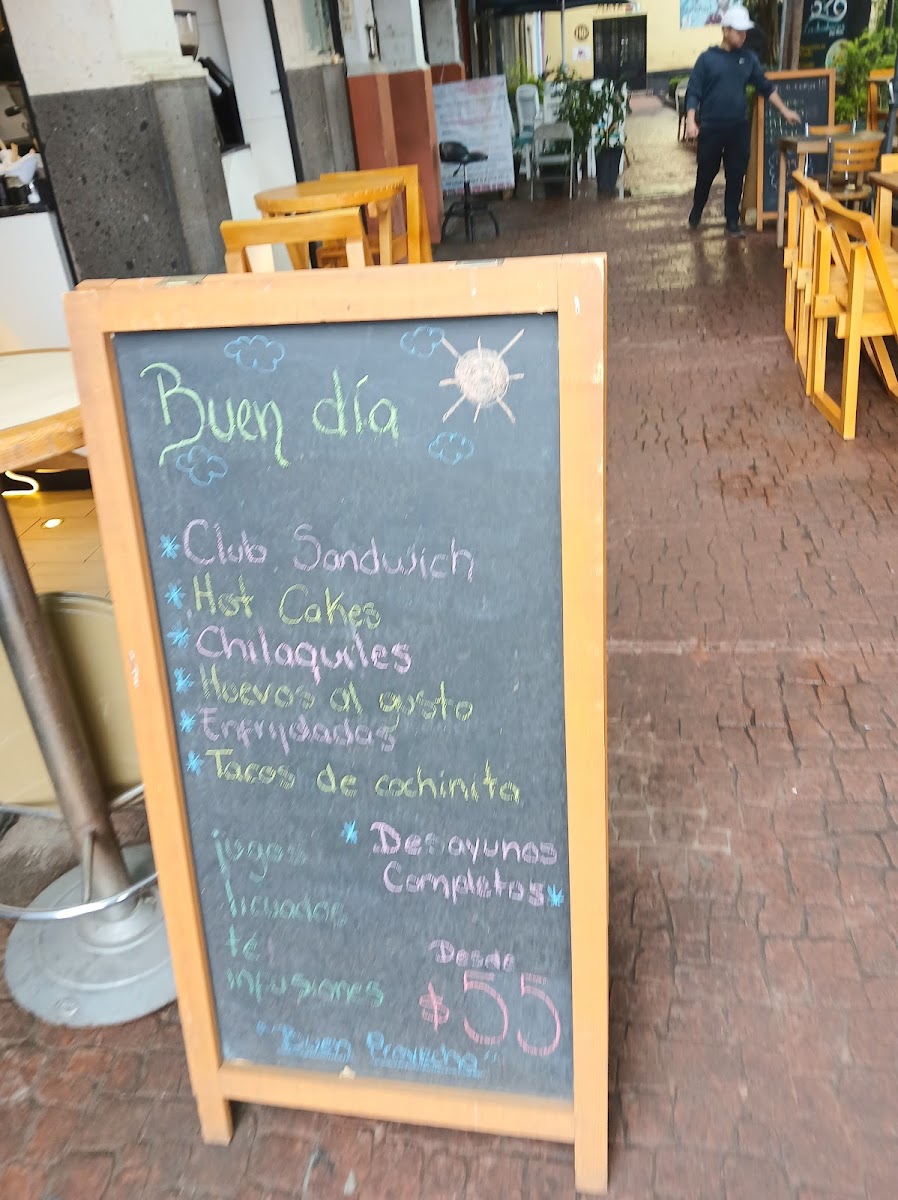 Buen día
* Club Sandwich
* Hot Cakes
* Chilaquiles
* Huevos al gusto
* Enfrijdadas
* Tacos de cochinita
* Desayunos
Completos *
jugos
licuados
té
infusiones
Desde
$55
"Buen Provecho"